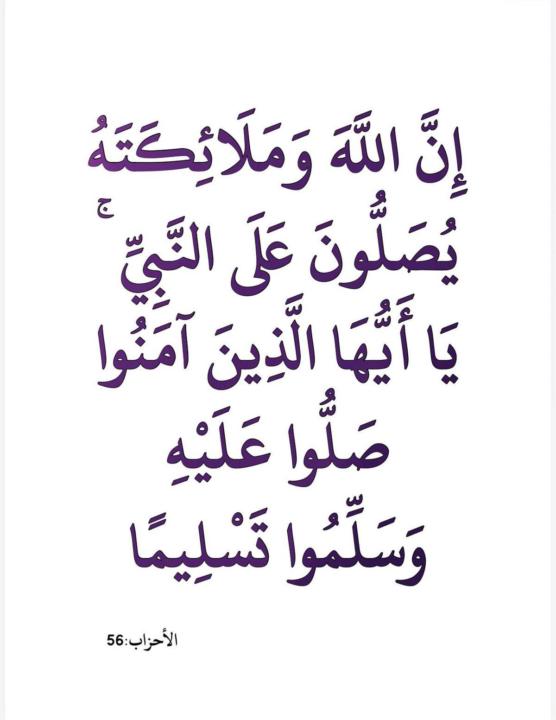 إِنَّ اللَّهَ وَمَلَائِكَتَهُ
يُصَلُّونَ عَلَى النَّبِيِّ ۚ
يَا أَيُّهَا الَّذِينَ آمَنُوا
صَلُّوا عَلَيْهِ
وَسَلِّمُوا تَسْلِيمًا
الأحزاب:56